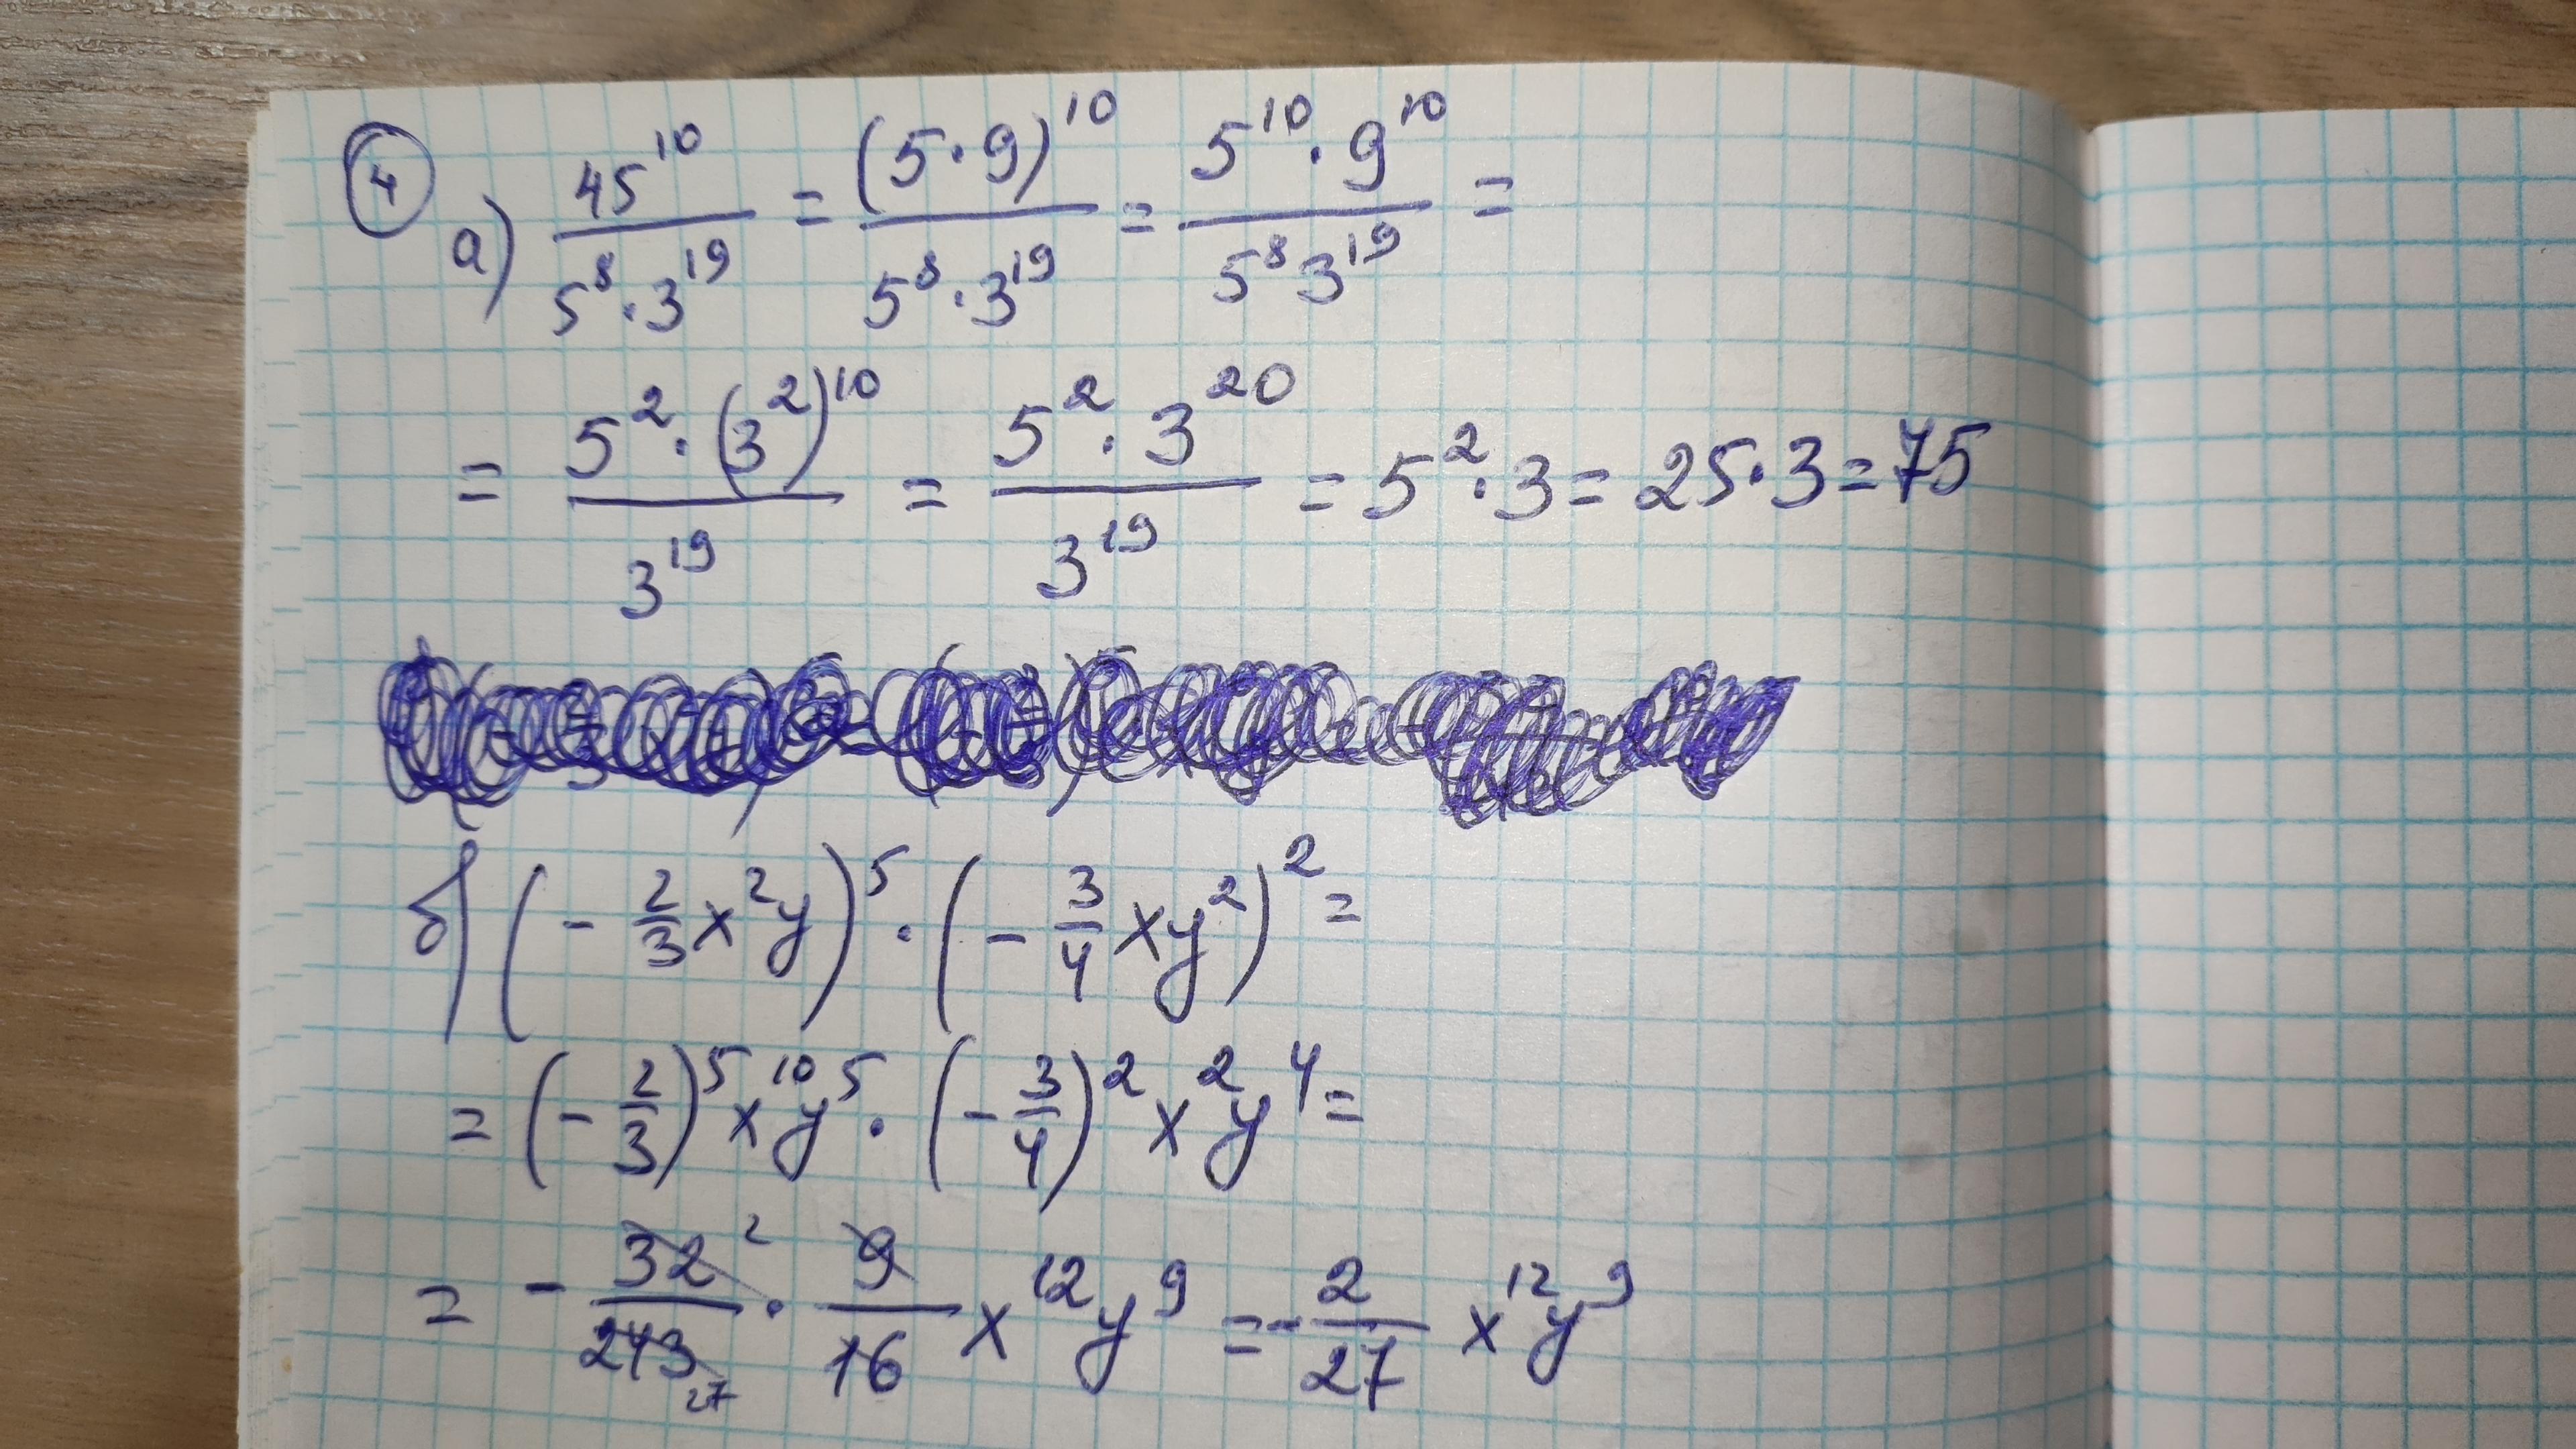 4
а) 45^10 / (5^8 · 3^19) = (5 · 9)^10 / (5^8 · 3^19) = (5^10 · 9^10) / (5^8 3^19) =
= (5^2 · (3^2)^10) / 3^19 = (5^2 · 3^20) / 3^19 = 5^2 · 3 = 25 · 3 = 75
б) (- 2/3 x^2 y)^5 · (- 3/4 x y^2)^2 =
= (- 2/3)^5 x^10 y^5 · (- 3/4)^2 x^2 y^4 =
= - 32 2 / 243 27 · 9 / 16 x^12 y^9 = - 2/27 x^12 y^9